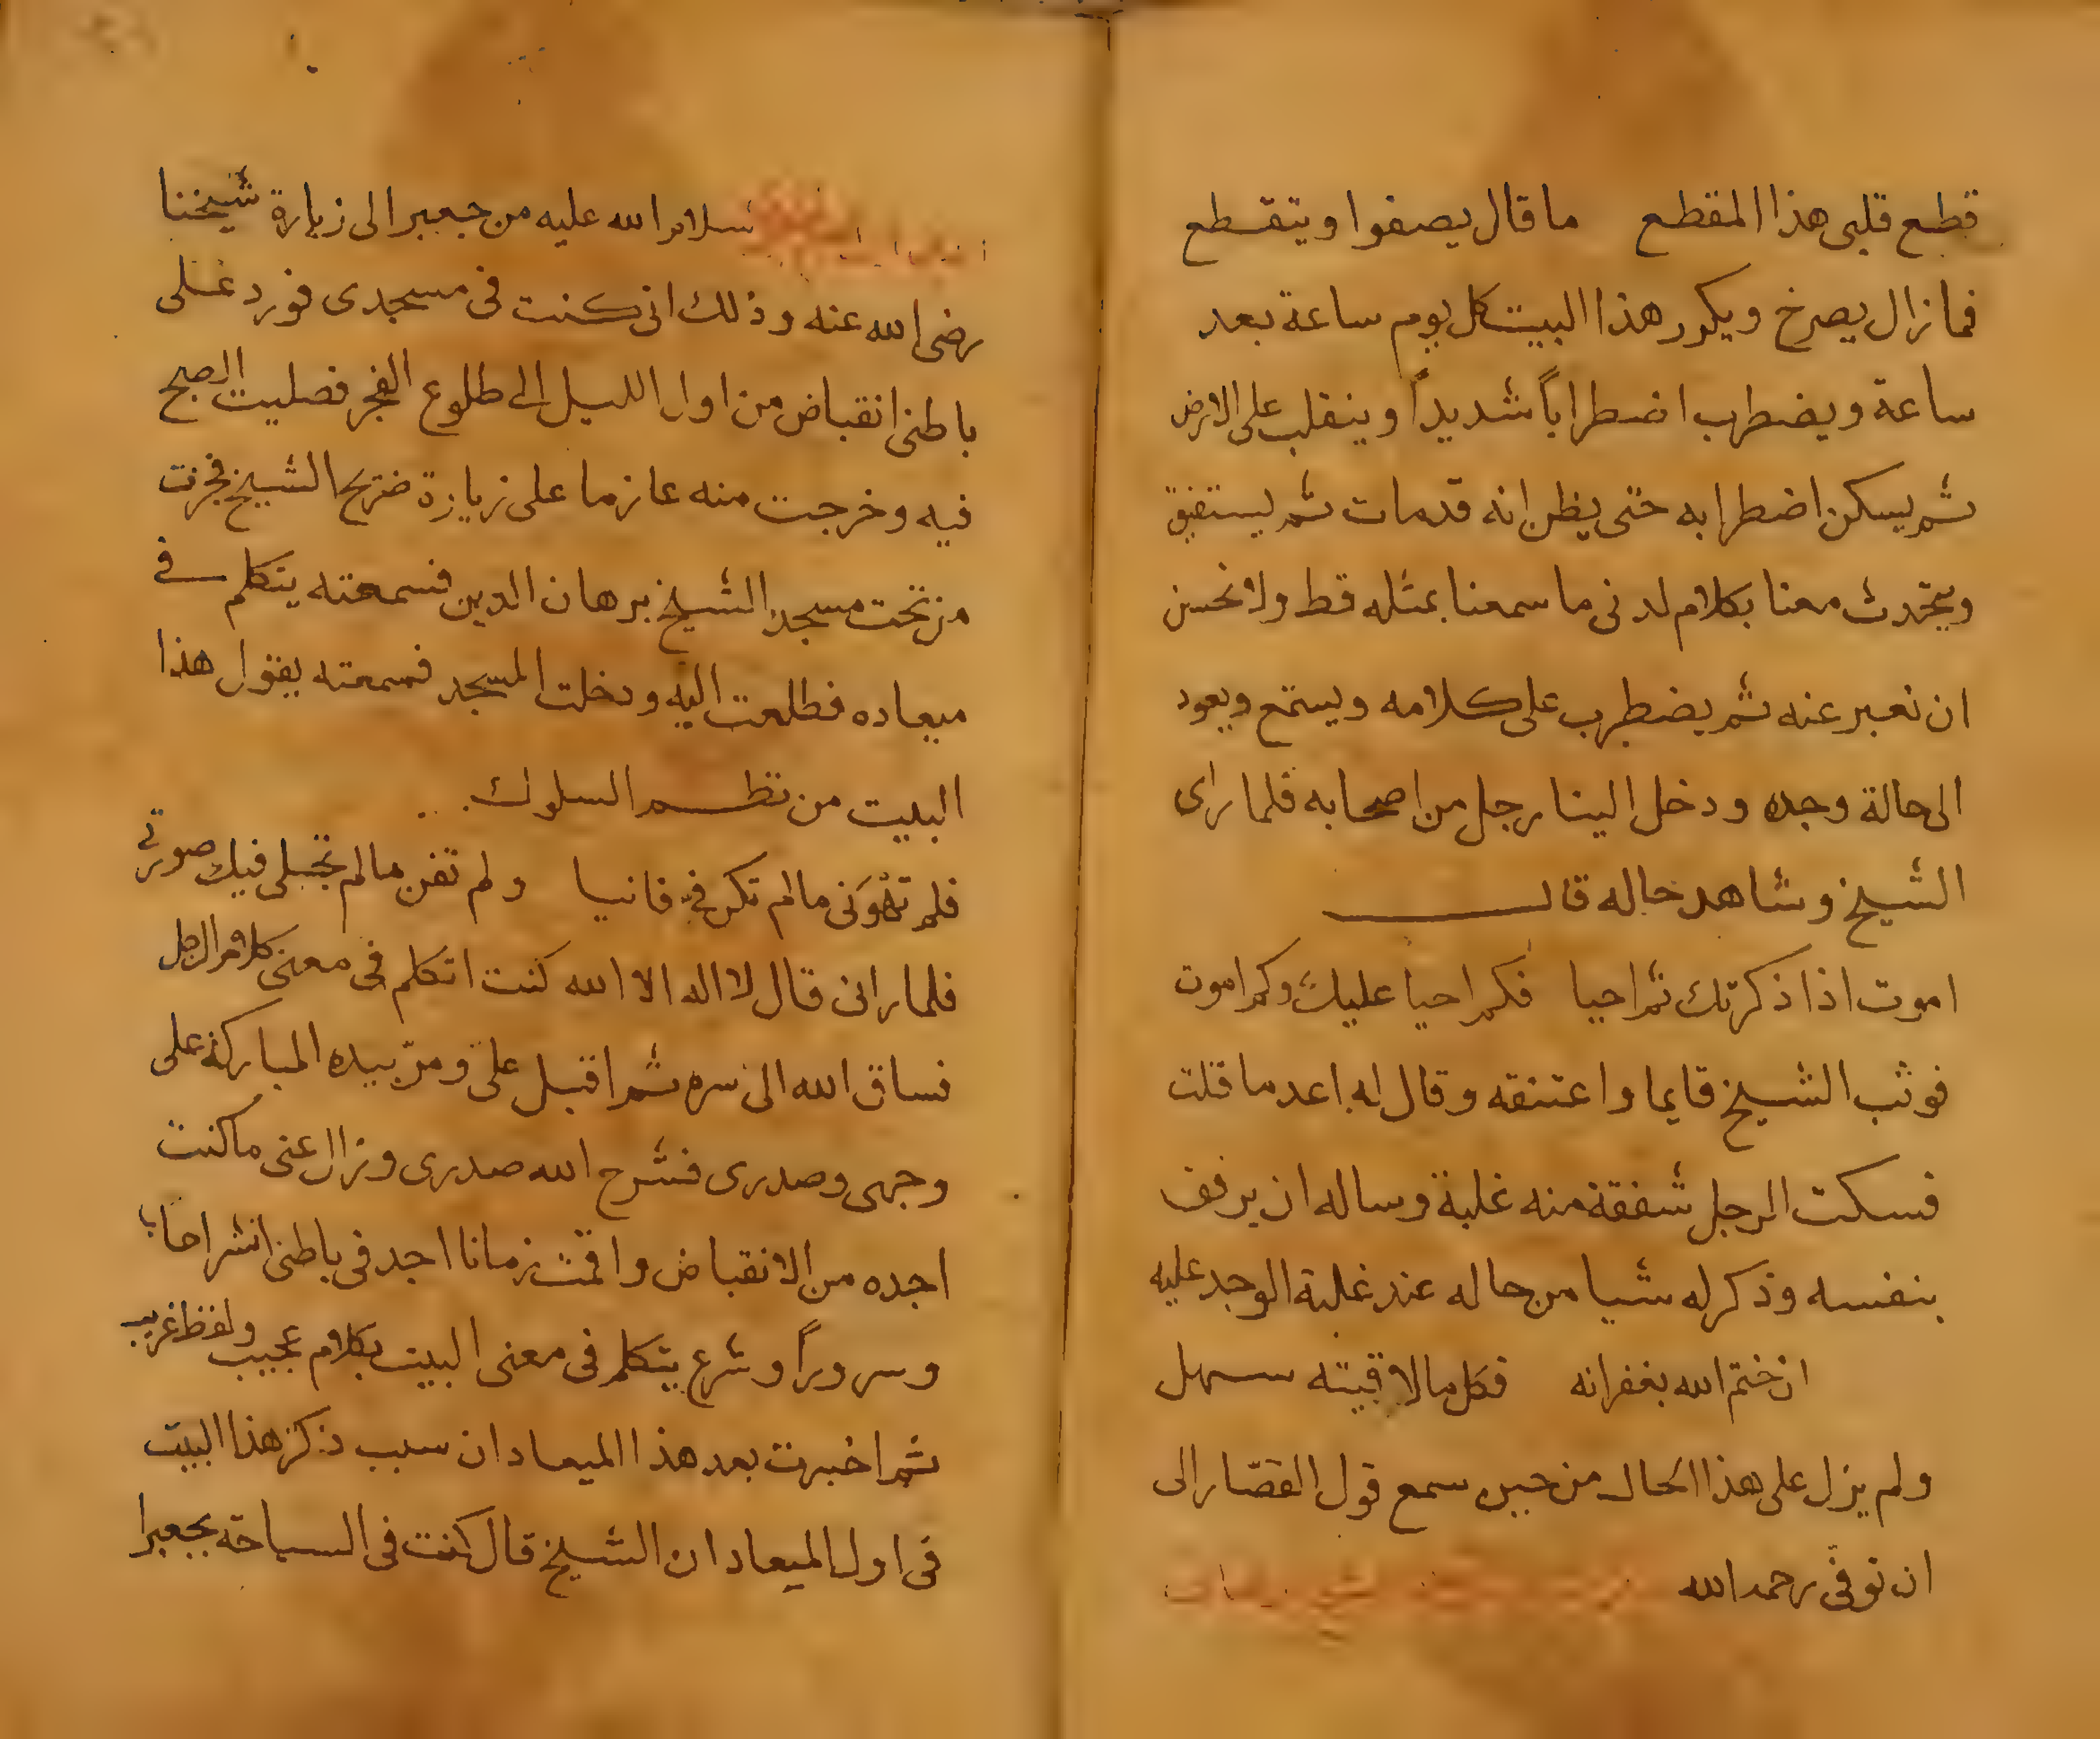 قطع قلبى هذا المقطع ما قال يصفوا ويتقطع
فما زال يصرخ ويكرر هذا البيت كل يوم ساعة بعد
ساعة ويضطرب اضطراباً شديداً وينقلب على الارض
ثم يسكن اضطرابه حتى يظن انه قد مات ثم يستفيق
ويتحدث معنا بكلام لدنى ما سمعنا بمثله قط ولا نحسن
ان نعبر عنه ثم يضطرب على كلامه ويستمع ويعود
الى حالة وجده ودخل الينا رجل من اصحابه فلما راى
الشيخ وشاهد حاله قال
اموت اذا ذكرتك ثم احيا فكم احيا عليك وكم اموت
فوثب الشيخ قايما واعتنقه وقال له اعد ما قلت
فسكت الرجل شفقة منه غلبة وساله ان يرفق
بنفسه وذكر له شيا من حاله عند غلبة الوجد عليه
ان ختم الله بغفرانه فكل ما لاقيته سهل
ولم يزل على هذا الحال من حين سمع قول القصّار الى
ان توفى رحمه الله
سلام الله عليه من جعبر الى زيارة شيخنا
رضى الله عنه وذلك انى كنت فى مسجدى فورد على
باطنى انقباض من اول الليل الى طلوع الفجر فصليت الصبح
فيه وخرجت منه عازما على زيارة ضريح الشيخ فجزت
من تحت مسجد الشيخ برهان الدين فسمعته يتكلم فى
ميعاده فطلعت اليه ودخلت المسجد فسمعته يقول هذا
البيت من نظم السلوك
فلم تهوَنى ما لم تكن فيّ فانيا ولم تفن ما لم تجتلى فيك صورتى
فلما رانى قال لا اله الا الله كنت اتكلم فى معنى كلام الرجل
فساق الله الىّ سره ثم اقبل علىّ ومرّ بيده المباركة على
وجهى وصدرى فشرح الله صدرى وزال عنى ما كنت
اجده من الانقباض واقمت زمانا اجد فى باطنى انشراحا
وسروراً وشرع يتكلم فى معنى البيت بكلام عجيب ولفظ غريب
ثم اخبرت بعد هذا الميعاد ان سبب ذكر هذا البيت
فى اول الميعاد ان الشيخ قال كنت فى السياحة بجعبر